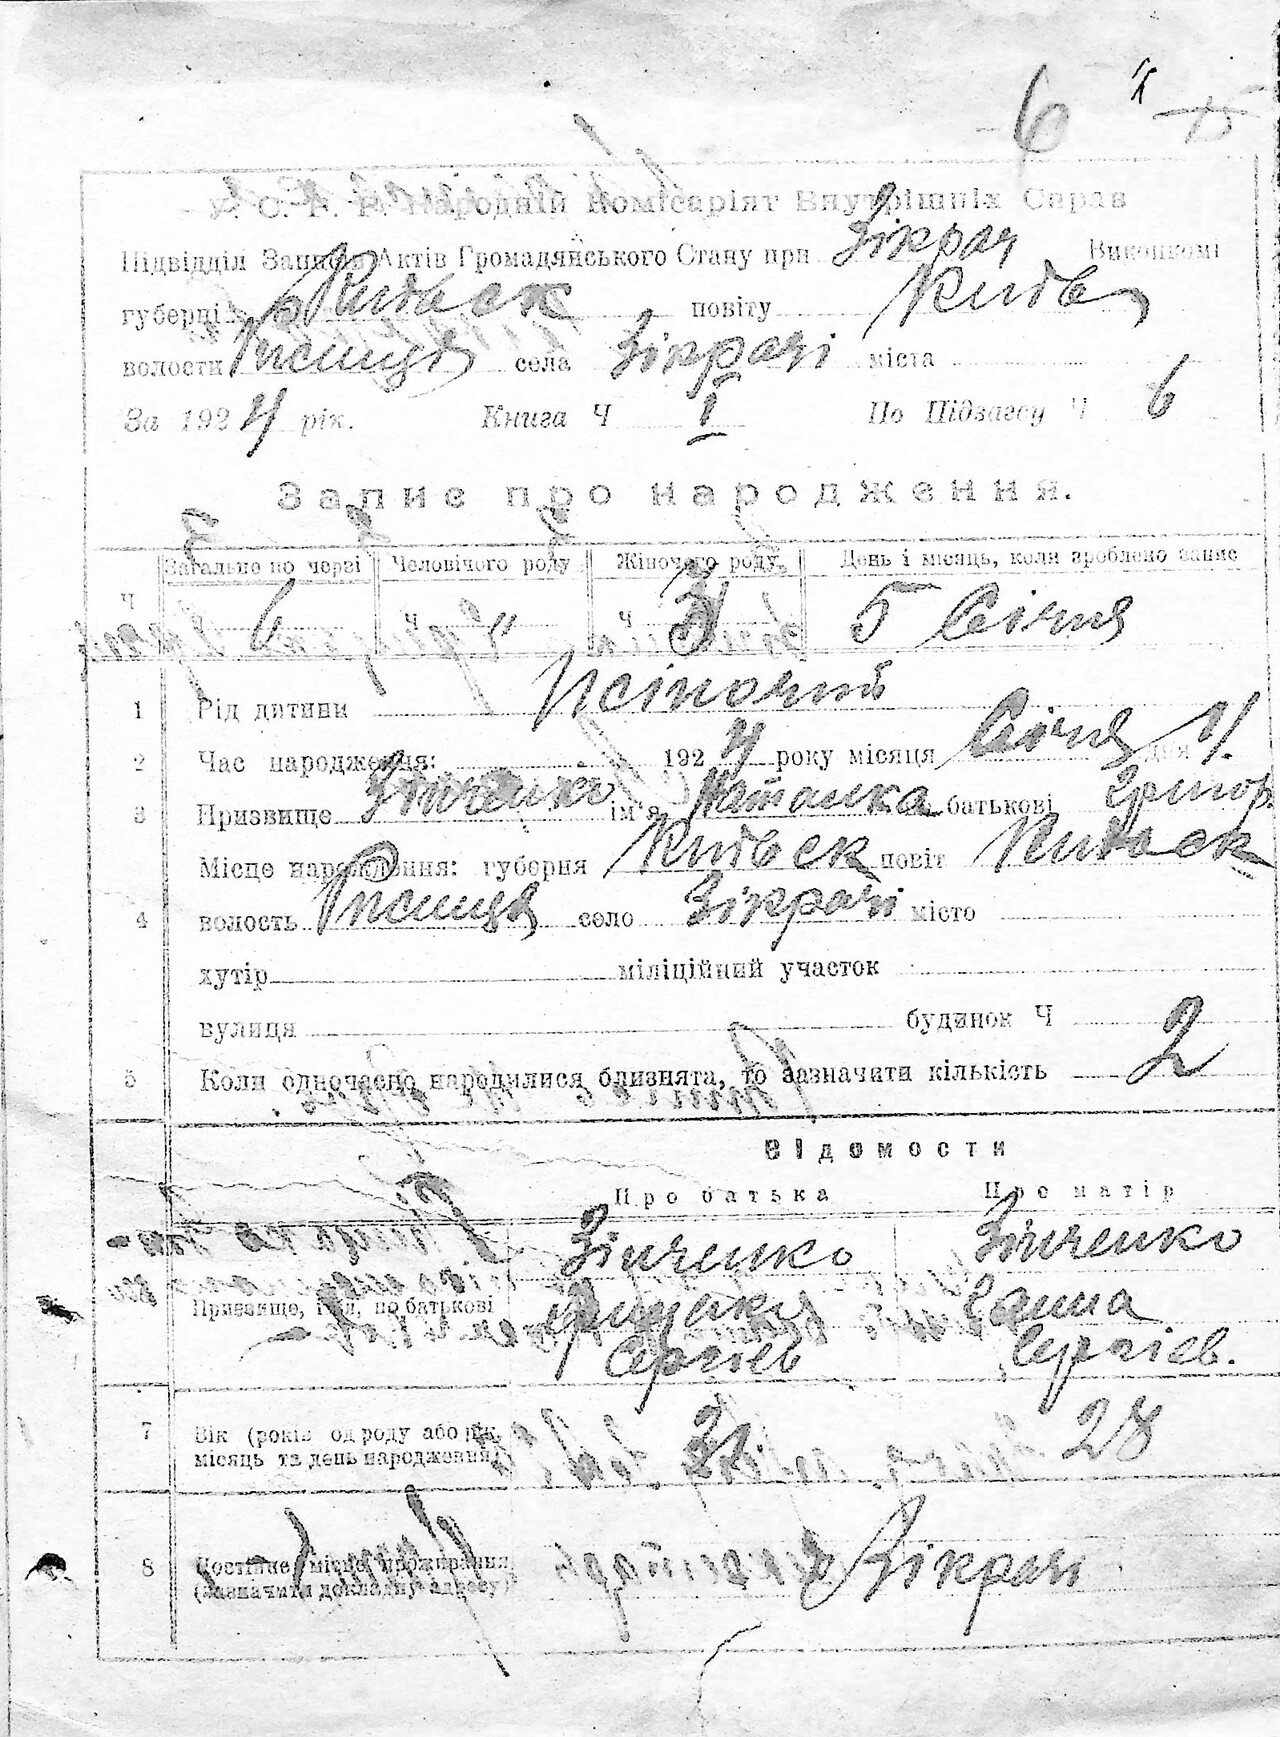 6
У. С. Р. Р. Народній Комісаріят Внутрішніх Справ
Підвідділ Записів Актів Громадянського Стану при Зікрач Виконкомі
губерні Київськ повіту Київ
волости села Зікрачі міста
За 1924 рік. Книга Ч I По Підзагсу Ч 6
Запис про народження.
Загальне по черзі Человічого роду Жіночого роду День і місяць, коли зроблено запис
Ч 6 Ч " Ч 3 5 Січня
1 Рід дитини Жіночий
2 Час народження: 1924 року місяця Січня дня
3 Призвище Зінченко ім'я батькові Григор.
Місце народження: губерня Київськ повіт Київськ
4 волость село Зікрачі місто
хутір міліційний участок
вулиця будинок Ч
5 Коли одночасно народилися близнята, то зазначити кількість 2
Відомости
Про батька Про матір
Зінченко Зінченко
Призвище, ім'я, по батькові Грицько Ганна
Сергієв Сергієв.
7 Вік (років од роду або рік, 28
місяць та день народження)
8 Постійне місце проживання Зікрачі
(Зазначити докладну адресу)